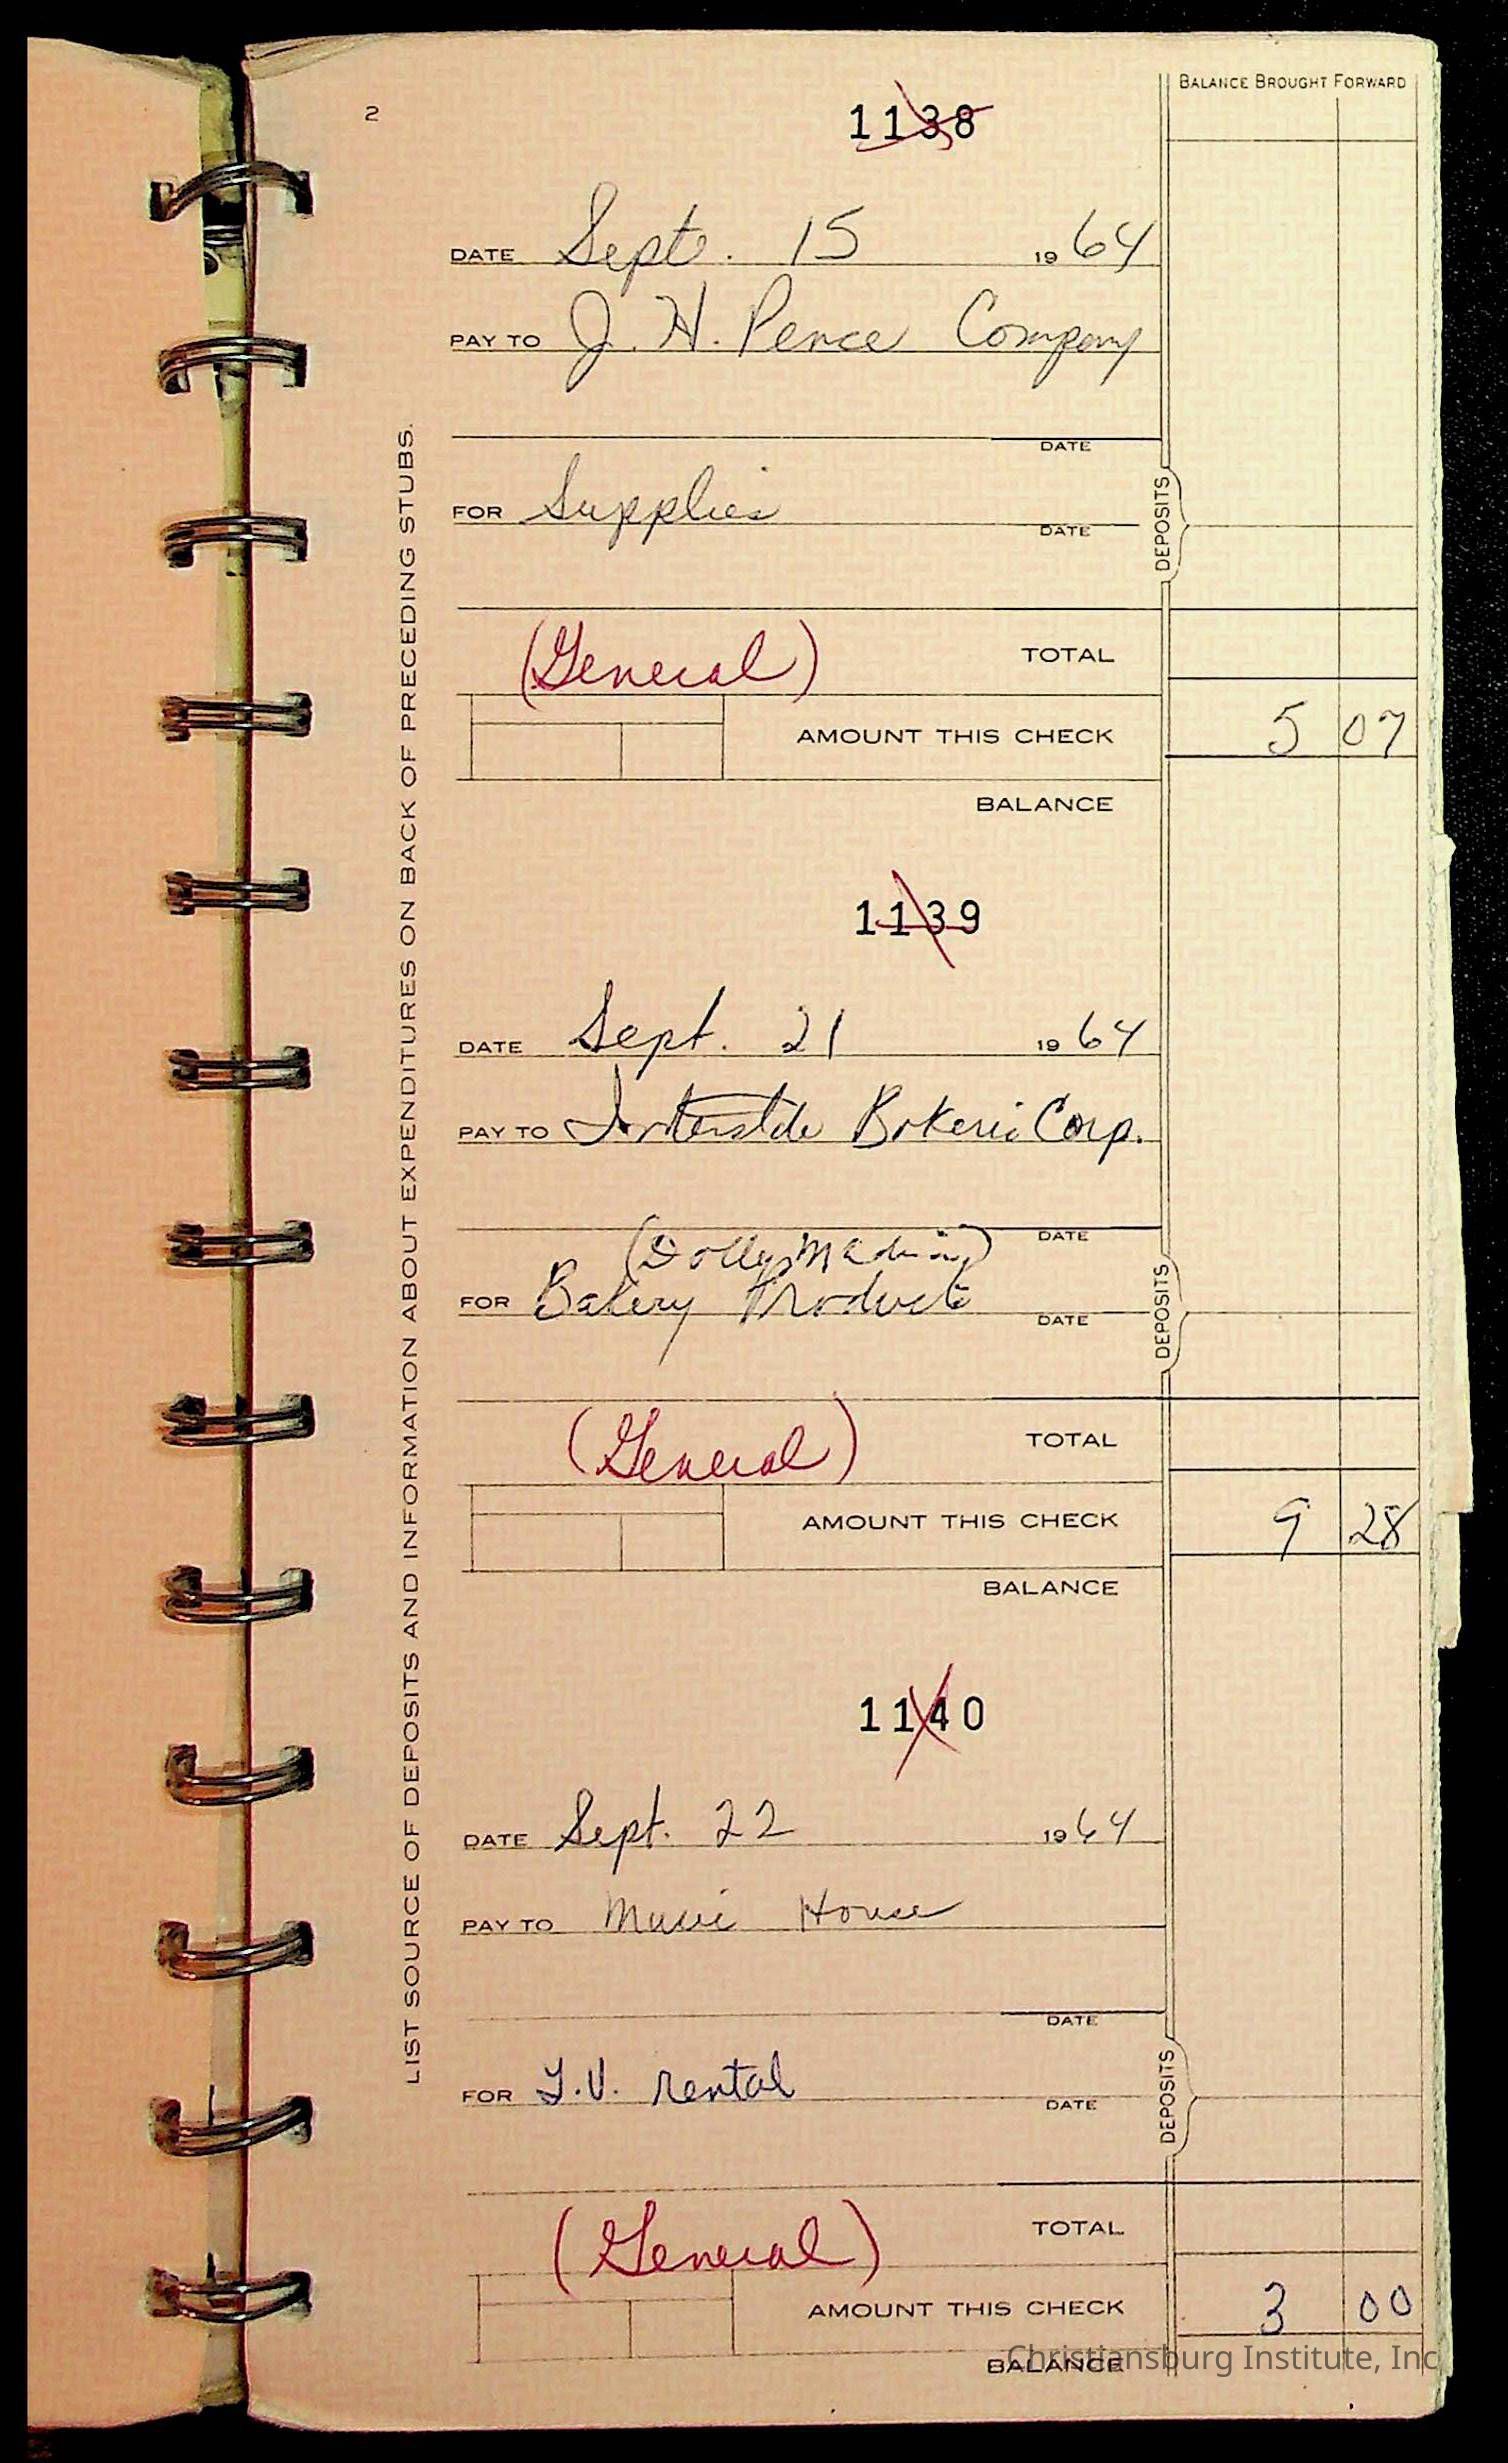 BALANCE BROUGHT FORWARD
2
1138
DATE Sept. 15 1964
PAY TO J. H. Pence Company
DATE
FOR Supplies
DATE
DEPOSITS
(General) TOTAL
AMOUNT THIS CHECK 5 07
BALANCE
LIST SOURCE OF DEPOSITS AND INFORMATION ABOUT EXPENDITURES ON BACK OF PRECEDING STUBS.
1139
DATE Sept. 21 1964
PAY TO Interstate Bakeries Corp.
DATE
(Dolly Madison)
FOR Bakery Products
DATE
DEPOSITS
(General) TOTAL
AMOUNT THIS CHECK 9 28
BALANCE
1140
DATE Sept. 22 1964
PAY TO Music House
DATE
FOR T.V. rental
DATE
DEPOSITS
(General) TOTAL
AMOUNT THIS CHECK 3 00
BALANCE
Christiansburg Institute, Inc